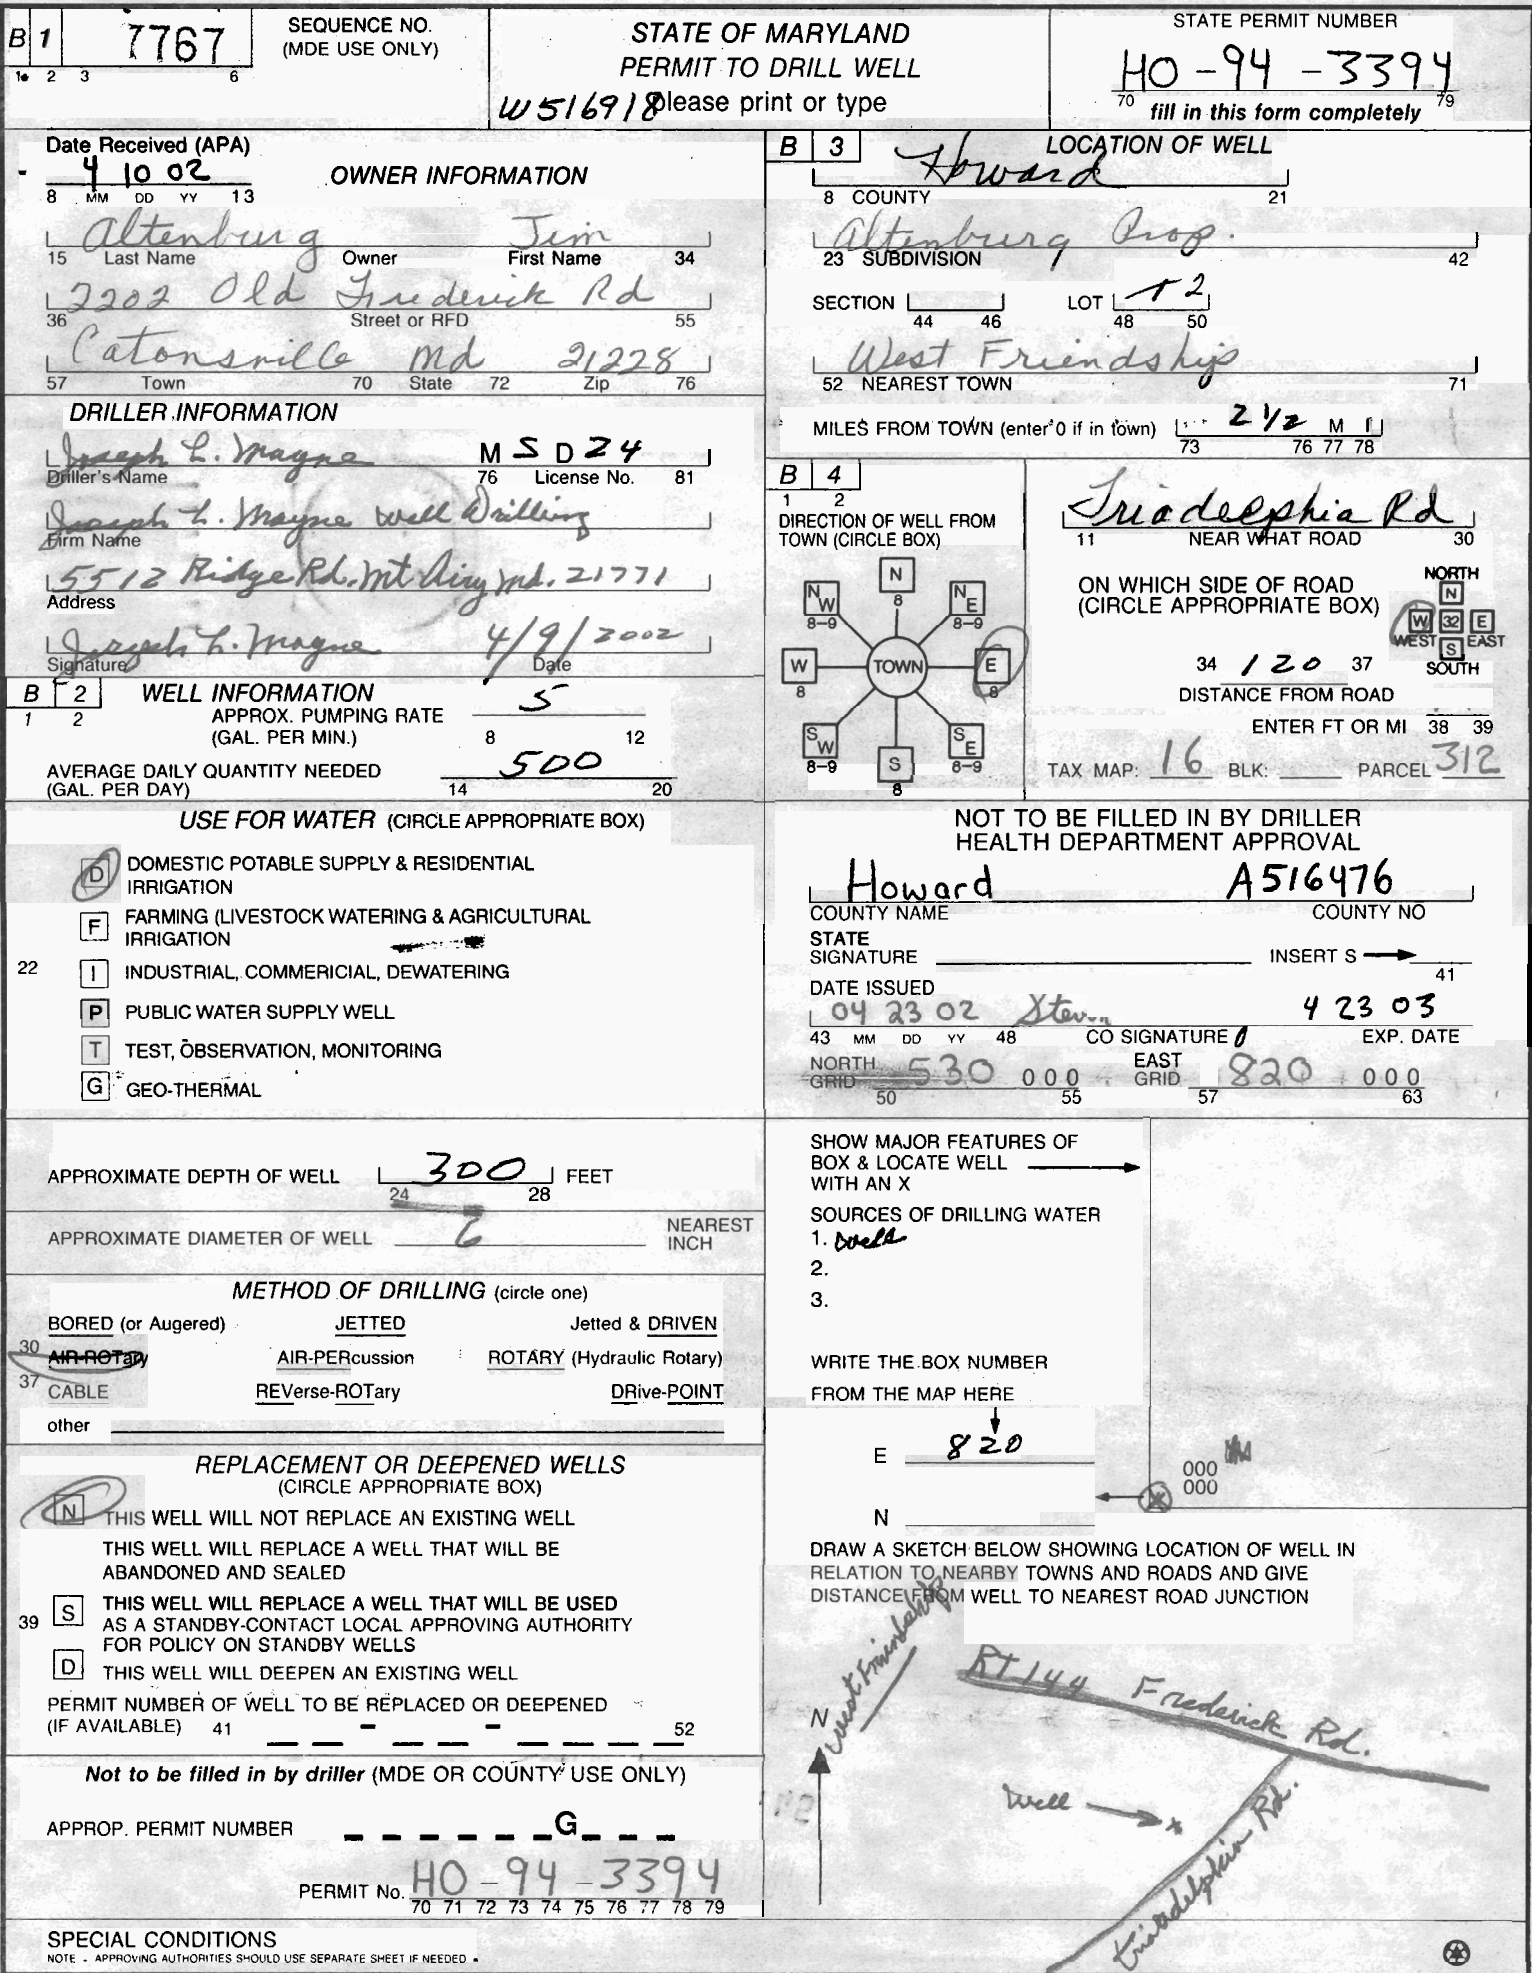 B 1 7767 SEQUENCE NO. (MDE USE ONLY)
1 2 3 6
STATE OF MARYLAND
PERMIT TO DRILL WELL
W516918 please print or type
STATE PERMIT NUMBER
HO-94-3394
70 79
fill in this form completely
Date Received (APA)
4 10 02
8 MM DD YY 13
OWNER INFORMATION
Altenburg Jim
15 Last Name Owner First Name 34
2202 Old Frederick Rd
36 Street or RFD 55
Catonsville Md 21228
57 Town 70 State 72 Zip 76
DRILLER INFORMATION
Joseph L. Mayne M S D 24
Driller's Name 76 License No. 81
Joseph L. Mayne Well Drilling
Firm Name
5512 Ridge Rd. Mt Airy Md. 21771
Address
Joseph L. Mayne 4/9/2002
Signature Date
B 2 WELL INFORMATION
1 2
APPROX. PUMPING RATE 5
(GAL. PER MIN.) 8 12
AVERAGE DAILY QUANTITY NEEDED 500
(GAL. PER DAY) 14 20
USE FOR WATER (CIRCLE APPROPRIATE BOX)
D DOMESTIC POTABLE SUPPLY & RESIDENTIAL
IRRIGATION
F FARMING (LIVESTOCK WATERING & AGRICULTURAL
IRRIGATION
22 I INDUSTRIAL, COMMERICIAL, DEWATERING
P PUBLIC WATER SUPPLY WELL
T TEST, OBSERVATION, MONITORING
G GEO-THERMAL
APPROXIMATE DEPTH OF WELL 300 FEET
24 28
APPROXIMATE DIAMETER OF WELL 6 NEAREST
INCH
METHOD OF DRILLING (circle one)
BORED (or Augered) JETTED Jetted & DRIVEN
30 AIR-ROTary AIR-PERcussion ROTARY (Hydraulic Rotary)
37 CABLE REVerse-ROTary DRive-POINT
other
REPLACEMENT OR DEEPENED WELLS
(CIRCLE APPROPRIATE BOX)
N THIS WELL WILL NOT REPLACE AN EXISTING WELL
THIS WELL WILL REPLACE A WELL THAT WILL BE
ABANDONED AND SEALED
39 S THIS WELL WILL REPLACE A WELL THAT WILL BE USED
AS A STANDBY-CONTACT LOCAL APPROVING AUTHORITY
FOR POLICY ON STANDBY WELLS
D THIS WELL WILL DEEPEN AN EXISTING WELL
PERMIT NUMBER OF WELL TO BE REPLACED OR DEEPENED
(IF AVAILABLE) 41 - - 52
Not to be filled in by driller (MDE OR COUNTY USE ONLY)
APPROP. PERMIT NUMBER G
PERMIT No. HO-94-3394
70 71 72 73 74 75 76 77 78 79
SPECIAL CONDITIONS
NOTE - APPROVING AUTHORITIES SHOULD USE SEPARATE SHEET IF NEEDED
B 3 LOCATION OF WELL
Howard
8 COUNTY 21
Altenburg Prop.
23 SUBDIVISION 42
SECTION LOT 2
44 46 48 50
West Friendship
52 NEAREST TOWN 71
MILES FROM TOWN (enter 0 if in town) 2 1/2 M I
73 76 77 78
B 4
1 2
DIRECTION OF WELL FROM
TOWN (CIRCLE BOX)
N
8
NW NE
8-9 8-9
W TOWN E
8 8
SW SE
8-9 8-9
S
8
Triadelphia Rd
11 NEAR WHAT ROAD 30
ON WHICH SIDE OF ROAD
(CIRCLE APPROPRIATE BOX)
NORTH
N
W 32 E
WEST S EAST
SOUTH
34 120 37
DISTANCE FROM ROAD
ENTER FT OR MI 38 39
TAX MAP: 16 BLK: PARCEL 312
NOT TO BE FILLED IN BY DRILLER
HEALTH DEPARTMENT APPROVAL
Howard A516476
COUNTY NAME COUNTY NO
STATE
SIGNATURE INSERT S
41
DATE ISSUED
04 23 02 4 23 03
43 MM DD YY 48 CO SIGNATURE EXP. DATE
NORTH GRID 530 000 EAST GRID 820 000
50 55 57 63
SHOW MAJOR FEATURES OF
BOX & LOCATE WELL
WITH AN X
SOURCES OF DRILLING WATER
1. well
2.
3.
WRITE THE BOX NUMBER
FROM THE MAP HERE
E 820
000
000
N
DRAW A SKETCH BELOW SHOWING LOCATION OF WELL IN
RELATION TO NEARBY TOWNS AND ROADS AND GIVE
DISTANCE FROM WELL TO NEAREST ROAD JUNCTION
West Friendship
N
RT 144 Frederick Rd.
Well
x
Triadelphia Rd.